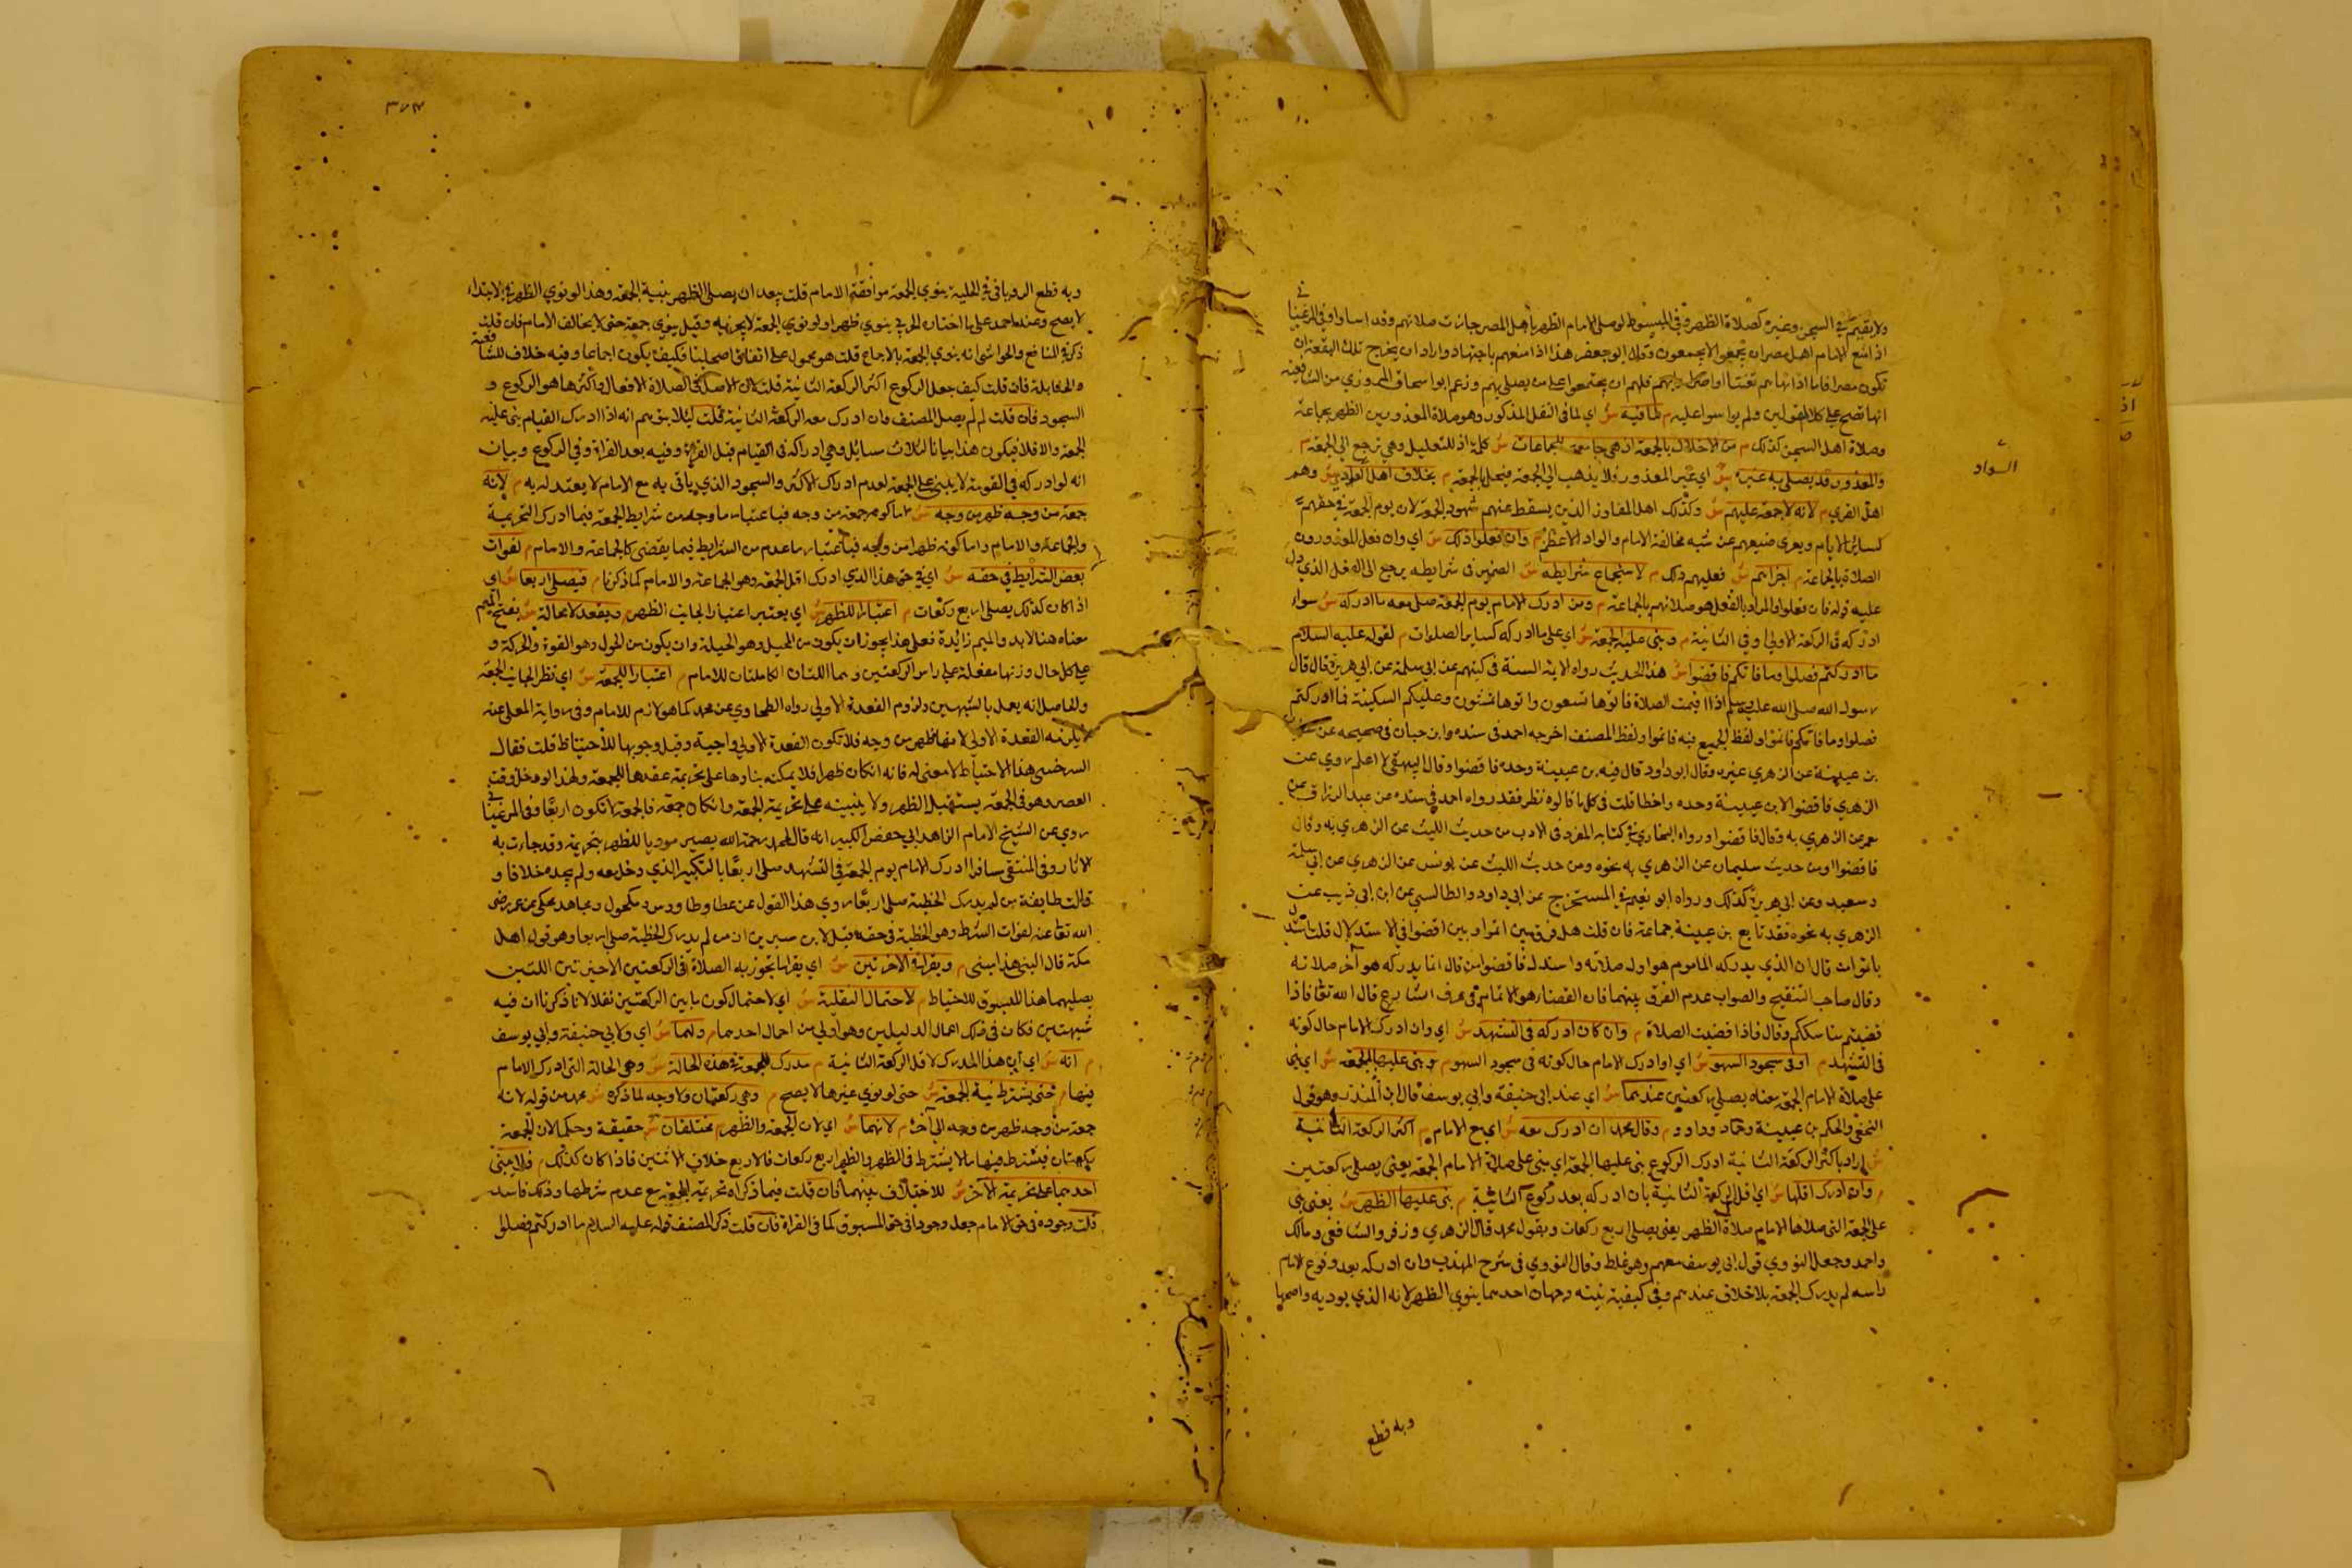 ولا بقيم في السجن وغيره كصلاة الظهر وفي المبسوط لو صلى الامام الظهر باهل المصر جازت صلاتهم وقد اساوا وفي المرغينا
في
اذا منع الامام اهل مصر ان يجمعوا لا يجمعون وقال ابو جعفر هذا اذا منعهم باجتهاد واراد ان يخرج تلك البقعة ان
تكون مصرا فاما اذا نهاهم تعنتا او اضرارا بهم فلهم ان يجتمعوا على من يصلي بهم وزعم ابو اسحاق المروزي من الشافعية
انها تصح على كلا القولين ولم يوا سوا عليه م لما فيه ش اي لما في النقل المذكور وهو صلاة المعذورين الظهر بجماعة
وصلاة اهل السجن كذلك م من الاخلال بالجمعة اذ هي جامعة للجماعات ش كلمة اذ للتعليل وهي ترجع الى الجمعة م
والمعذور قد يصلى به غيره ش اي غير المعذور ولا يذهب الى الجمعة فيخل بالجمعة م بخلاف اهل السواد ش وهم
السواد
اهل القرى م لانه لا جمعة عليهم ش وكذلك اهل المفاوز الذين يسقط عنهم شهود الجمعة لان يوم الجمعة في حقهم
كسائر الايام ويعرى صنيعهم عن شبه مخالفة الامام والواد الاعظم م وان فعلوا ذلك ش اي وان فعل المعذورون
الصلاة بالجماعة م اجزاهم ش فعليهم ذلك م لاستجماع شرايطه ش الضمير في شرايطه يرجع الى الفعل الذي دل
عليه قوله فان فعلوا والمراد بالفعل هو صلاتهم بالجماعة م ومن ادرك الامام يوم الجمعة صلى معه ما ادركه ش سواء
ادركه في الركعة الاولى او في الثانية م وبنى عليه الجمعة ش اي على ما ادركه كساير الصلوات م لقوله عليه السلام
ما ادركتم فصلوا وما فاتكم فاقضوا ش هذا الحديث رواه الايمة الستة في كتبهم عن ابي سلمة عن ابي هريرة قال قال
رسول الله صلى الله عليه وسلم اذا اقيمت الصلاة فلا تاتوها تسعون واتوها تمشون وعليكم السكينة فما ادركتم
فصلوا وما فاتكم فاتموا ولفظ الجميع فيه فاتموا ولفظ المصنف اخرجه احمد في مسنده وابن حبان في صحيحه عن سفيان
بن عيينة عن الزهري غيره وقال ابو داود قال فيه بن عيينة وحده فاقضوا وقال البيهقي لا اعلم روي عن
الزهري فاقضوا الا بن عيينة وحده واخطا قلت في كل ما قالوه نظر فقد رواه احمد في مسنده عن عبد الرزاق عن
معمر عن الزهري به وقال فاقضوا ورواه البخاري في كتابه المفرد في الادب من حديث الليث عن الزهري به وقال
فاقضوا ومن حديث سليمان عن الزهري به نحوه ومن حديث الليث عن يونس عن الزهري عن ابي سلمة
وسعيد وعن ابي هريرة كذلك ورواه ابو نعيم في المستخرج عن ابي داود والطالسي عن ابن ابي ذيب عن
الزهري به نحوه فقد تابع بن عيينة جماعة فان قلت هل فرق بين اتموا وبين اقضوا في الاستدلال قلت استدل
باتموا من قال ان الذي يدركه الماموم هو اول صلاته واستدل فاقضوا من قال انما يدركه هو آخر صلاته
وقال صاحب التنقيح والصواب عدم الفرق بينهما فان القضاء هو الاتمام في عرف الشارع قال الله تعالى فاذا
قضيتم مناسككم وقال فاذا قضيت الصلاة م وان كان ادركه في التشهد ش اي وان ادرك الامام حال كونه
في التشهد م او في سجود السهو ش اي او ادرك الامام حال كونه في سجود السهو م وبنى عليها الجمعة ش اي بنى
على صلاة الامام الجمعة معناه يصلي ركعتين عندهما ش اي عند ابي حنيفة وابي يوسف قال ابن المنذر وهو قول
النخعي والحكم بن عيينة وحماد وداود م وقال محمد ان ادرك معه ش اي مع الامام م اكثر الركعة الثانية
ش اراد باكثر الركعة الثانية ادرك الركوع بنى عليها الجمعة اي بنى على صلاة الامام الجمعة يعني يصلي ركعتين
م وان ادرك اقلها ش اي اقل الركعة الثانية بان ادركه بعد ركوع الثانية م بنى عليها الظهر ش يعني بنى
على الجمعة التي صلاها الامام صلاة الظهر يعني يصلي اربع ركعات وبقول محمد قال الزهري وزفر والشافعي ومالك
واحمد وجعل النووي قول ابي يوسف معهم وهو غلط وقال النووي في شرح المهذب وان ادركه بعد رفوع الامام
راسه لم يدرك الجمعة بلا خلاف عندهم وفي كيفية نيته وجهان احدهما ينوي الظهر لانه الذي يوديه واصحها
وبه قطع
٣٧٤
وبه قطع الروياني في الحلية ينوي الجمعة موافقة الامام قلت بعد ان يصلى الظهر بنية الجمعة وهذا لو نوى الظهر في الابتداء
لا يصح وعند احمد على ما اختاره الخرقي ينوي ظهرا ولو نوى الجمعة لا يجزيه وقيل ينوي جمعة حتى لا يخالف الامام فان قلت
ذكر في المنافع والحواشي انه ينوي الجمعة بالاجماع قلت هو محمول على اتفاق اصحابنا فكيف يكون اجماعا وفيه خلاف للشافعية
والحنابلة فان قلت كيف جعل الركوع اكثر الركعة الثانية قلت لان الاصل في الصلاة الافعال واكثرها هو الركوع و
السجود فان قلت لم لم يصل المصنف فان ادرك معه الركعة الثانية قلت ليلا يتوهم انه اذا ادرك القيام بنى عليه
الجمعة والا فلا فيكون هذا بيانا لثلاث مسائل وهي ادراكه في القيام قبل القراة وفيه بعد القراة وفي الركوع وبيان
انه لو ادركه في القومة لا يبنى على الجمعة لعدم ادراك الاكثر والسجود الذي ياتي به مع الامام لا يعتد له به م لانه
جمعة من وجه ظهر من وجه ش اما كونه جمعة من وجه فباعتبار ما وجد من شرايط الجمعة فيما ادرك التحريمة
والجماعة والامام واما كونه ظهرا من وجه فباعتبار ما عدم من الشرايط فيما يقضى كالجماعة والامام م لفوات
بعض الشرايط في حقه ش اي في حق هذا الذي ادرك اقل الجمعة وهو الجماعة والامام كما ذكرنا م فيصلي اربعا ش اي
اذا كان كذلك يصلي اربع ركعات م اعتبارا للظهر ش اي يعتبر اعتبارا لجانب الظهر م ويقعد لا محالة ش بفتح الميم
معناه هنا لابد والميم زائدة فعلى هذا يجوز ان يكون من الحيل وهو الحيلة وان يكون من الحول وهو القوة والحركة و
على كل حال وزنها مفعلة على راس الركعتين وهما اللتان الكاملتان للامام م اعتبارا للجمعة ش اي نظر الجانب الجمعة
والحاصل انه يعمل بالشبهين ولزوم القعدة الاولى رواه الطحاوي عن محمد كما هو لازم للامام وفي رواية المعلى عنه
لا يلزمه القعدة الاولى لانها ظهر من وجه فلا تكون القعدة الاولى واجبة وقيل وجوبها للاحتياط قلت فقال
السرخسي هذا الاحتياط لا معنى له فانه ان كان ظهرا فلا يمكنه بناوها على تحريمة عقدها للجمعة ولهذا لو دخل وقت
العصر وهو في الجمعة يستقبل الظهر ولا يبنيه على تحريمة الجمعة وان كان جمعة فالجمعة لا تكون اربعا وفي المرغينا
في
روي عن الشيخ الامام الزاهد ابي حفص الكبير انه قال لمحمد رحمه الله يصير موديا للظهر بتحريمة وقد جاءت به
الاثار وفي المنتقى مسافر ادرك الامام يوم الجمعة في التشهد صلى اربعا بالتكبير الذي دخل معه ولم يحده خلافا و
قالت طايفة من لم يدرك الخطبة صلى اربعا روي هذا القول عن عطا وطاووس ومكحول ومجاهد يحكى عن عمر رضي
الله تعالى عنه لفوات الشرط وهو الخطبة في حقه قيل لابن سيرين ان من لم يدرك الخطبة صلى اربعا وهو قول اهل
مكة قال البنى هذا مبنى م ويقرا في الاخريين ش اي يقرا بما تجوز به الصلاة في الركعتين الاخيرتين اللتين
يصليهما هذا المسبوق للاحتياط م لاحتمال النفلية ش اي لاحتمال كون ما بين الركعتين نفلا لانا ذكرنا ان فيه
شبهتين فكان في ذلك اعمال الدليلين وهو اولى من احمال احدهما م ولهما ش اي ولابي حنيفة وابي يوسف
م انه ش اي ان هذا المدرك لاقل الركعة الثانية م مدرك للجمعة في هذه الحالة ش وهي الحالة التي ادرك الامام
فيها م حتى يشترط نية الجمعة ش حتى لو نوى غيرها لا يصح م وهي ركعتان ولا وجه لما ذكره ش محمد من قوله لانه
جمعة من وجه ظهر من وجه الى آخره م لانهما ش اي لان الجمعة والظهر م مختلفان ش حقيقة وحكما لان الجمعة
ركعتان فيشترط فيها ما لا يشترط في الظهر والظهر اربع ركعات فالاربع خلاف الاثنتين فاذا كان كذلك م فلا يبنى
احدهما على تحريمة الآخر ش للاختلاف بينهما فان قلت فيما ذكراه تحريمة الجمعة مع عدم شرطها وذلك فاسد
قلت وجوده في حق الامام جعل وجودا في حق المسبوق كما في القراة فان قلت ذكر المصنف قوله عليه السلام ما ادركتم فصلوا